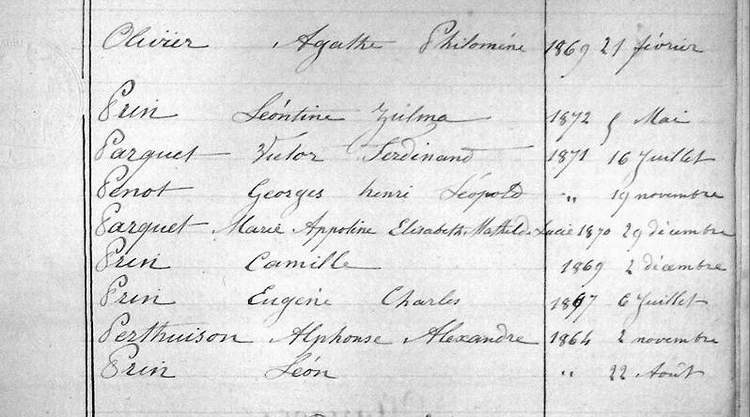 Olivier Agathe Philomène 1869 21 février
Prin Léontine Zulma 1872 5 Mai
Parquet Victor Ferdinand 1871 16 Juillet
Penot Georges henri Léopold " 19 novembre
Parquet Marie Appoline Elisabeth Mathilde Lucie 1870 29 décembre
Prin Camille 1869 2 décembre
Prin Eugène Charles 6 Juillet
Perthuison Alphonse Alexandre 1864 2 novembre
Prin Léon " 22 Août